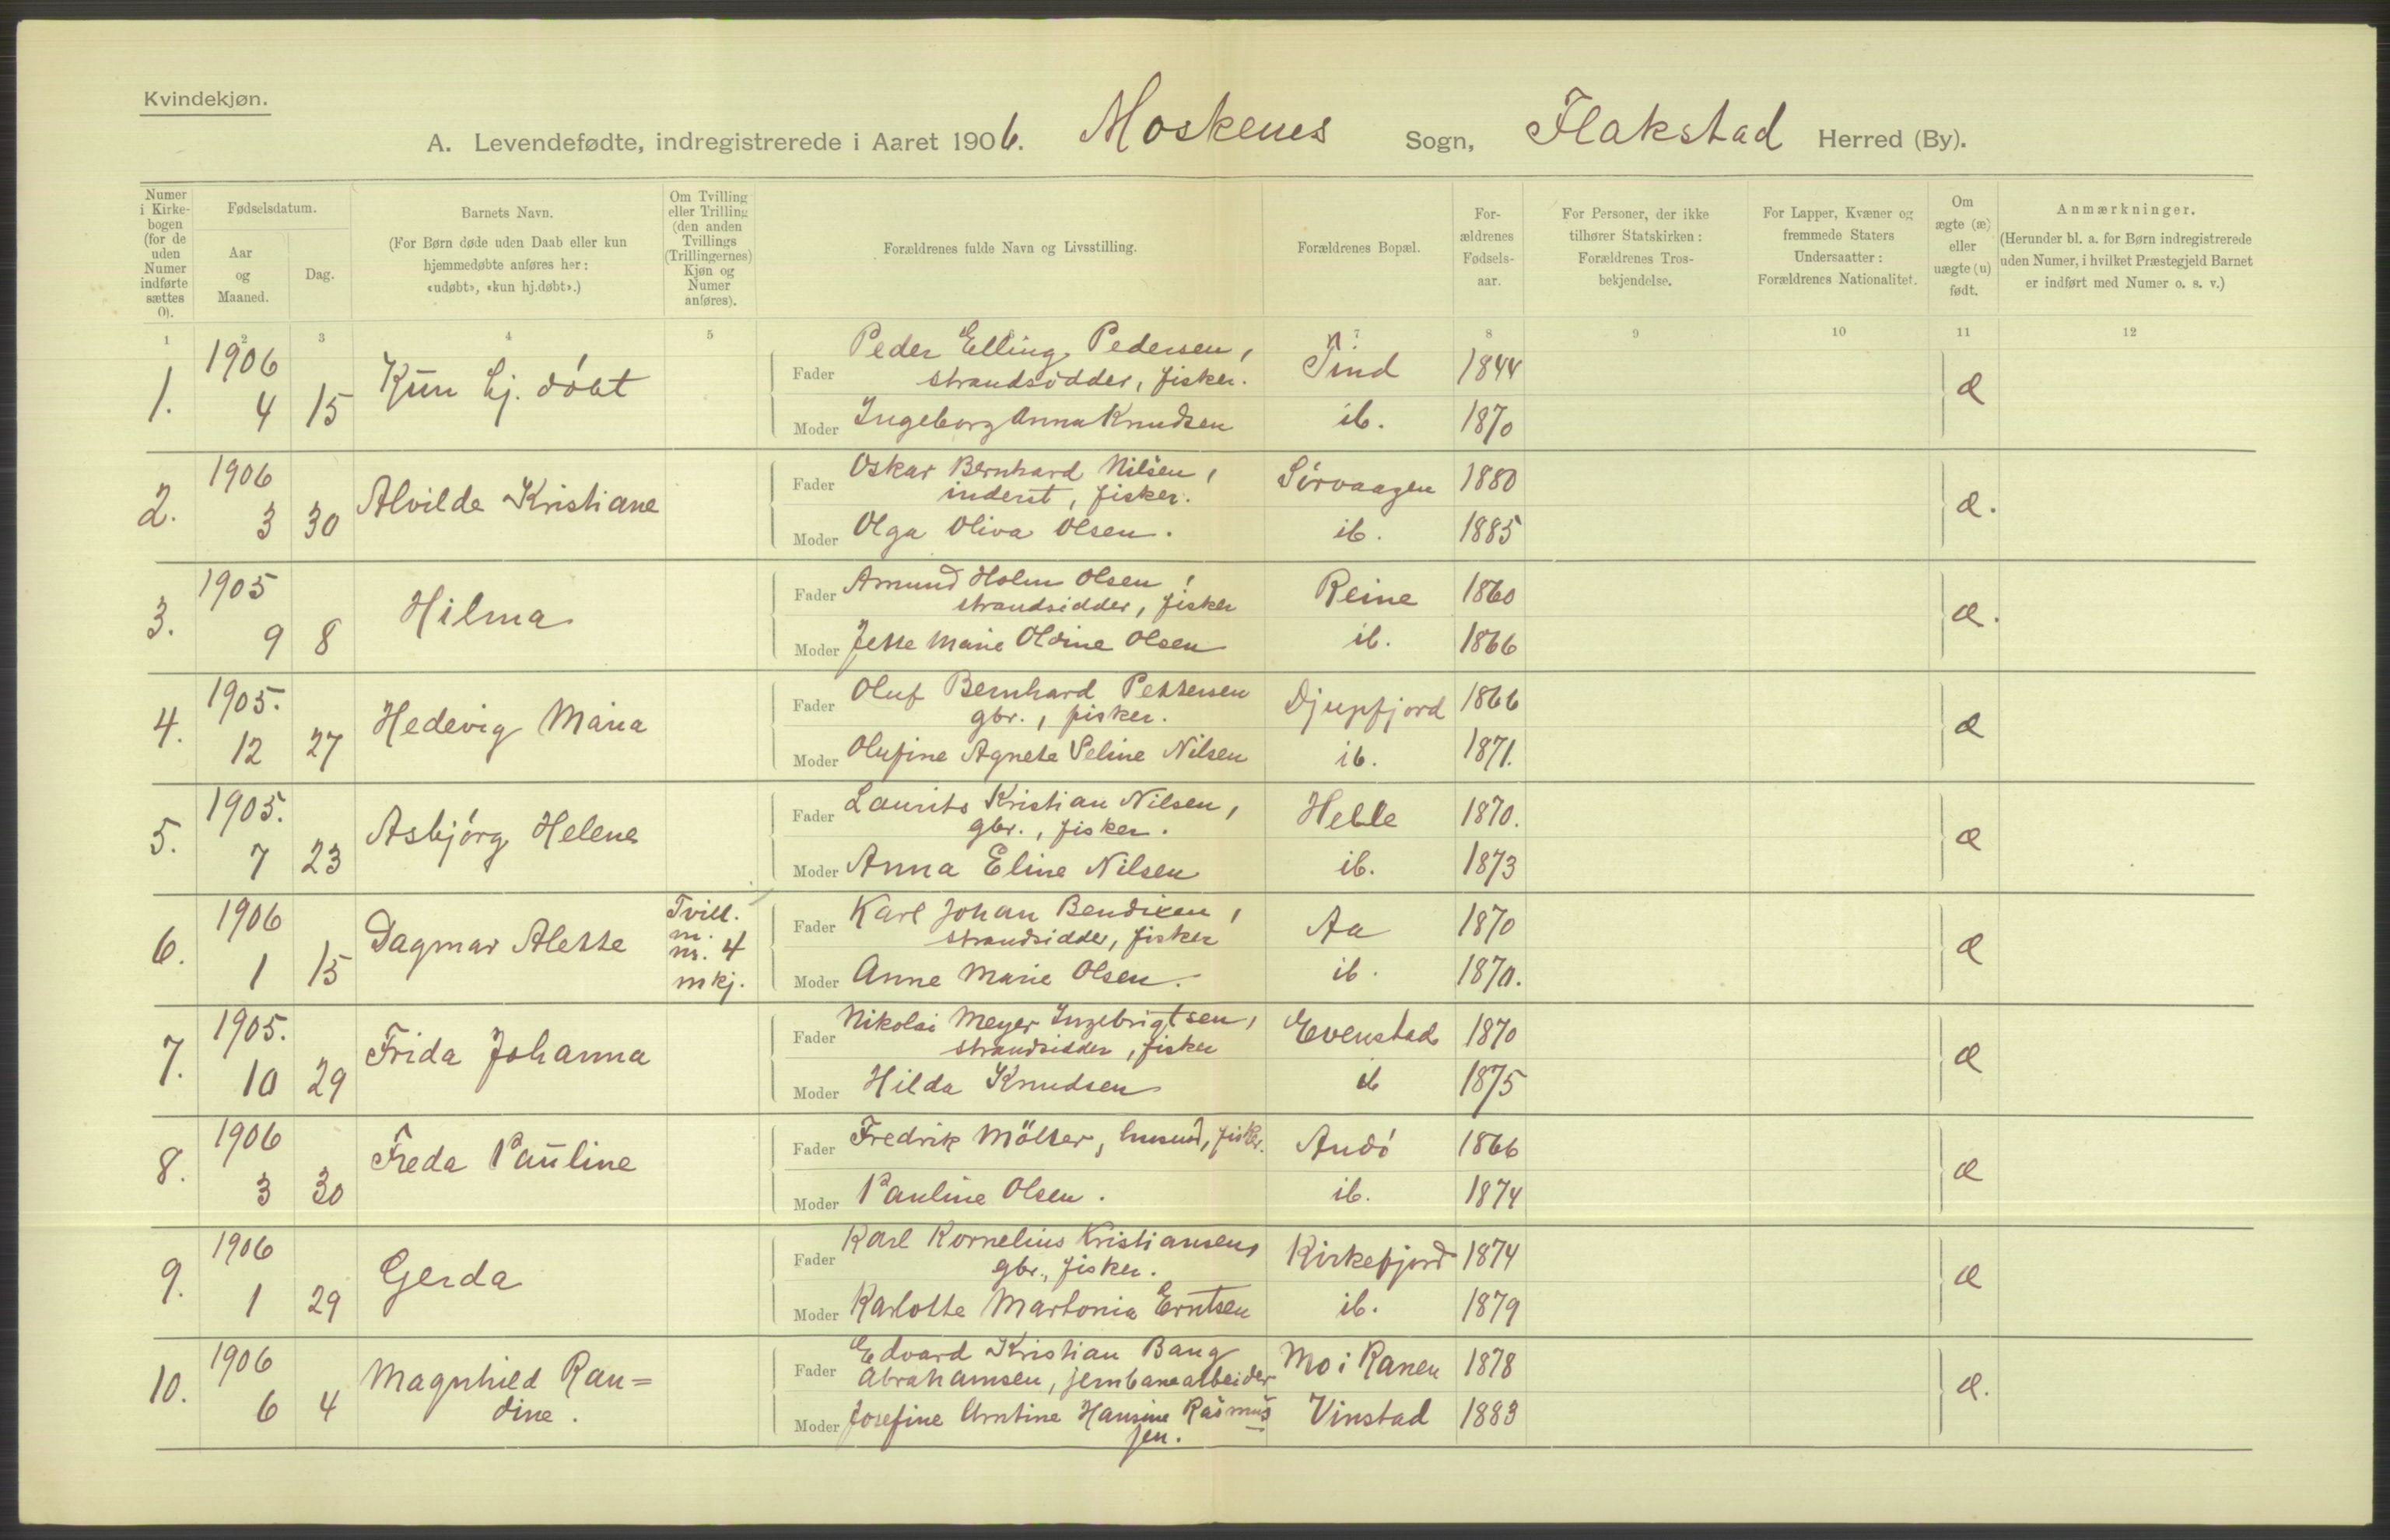 Kvindekjøn.
A. Levendefødte, indregistrerede i Aaret 1906. Moskenes Sogn, Flakstad Herred (By).
Numer i Kirkebogen (for de uden Numer indførte sættes 0).
Fødselsdatum.
Aar og Maaned.
Dag.
Barnets Navn.
(For Børn døde uden Daab eller kun hjemmedøbte anføres her: «udøbt», «kun hj.døbt».)
Om Tvilling eller Trilling (den anden Tvillings (Trillingernes) Kjøn og Numer anføres).
Forældrenes fulde Navn og Livsstilling.
Forældrenes Bopæl.
Forældrenes Fødselsaar.
For Personer, der ikke tilhører Statskirken: Forældrenes Trosbekjendelse.
For Lapper, Kvæner og fremmede Staters Undersaatter: Forældrenes Nationalitet.
Om ægte (æ) eller uægte (u) født.
Anmærkninger.
(Herunder bl. a. for Børn indregistrerede uden Numer, i hvilket Præstegjeld Barnet er indført med Numer o. s. v.)
1 2 3 4 5 7 8 9 10 11 12
1. 1906 4 15 Kun hj. döbt
Fader Peder Elling Pedersen, strandsidder, fisker. Tind 1844 æ
Moder Ingeborg Anna Knudsen ib. 1870
2. 1906 3 30 Alvilde Kristiane
Fader Oskar Bernhard Nilsen, inderst, fisker. Sörvaagen 1880 æ.
Moder Olga Oliva Olsen. ib. 1885
3. 1905 9 8 Hilma
Fader Amund Holm Olsen, strandsidder, fisker Reine 1860 æ.
Moder Jette Marie Oldine Olsen ib. 1866
4. 1905. 12 27 Hedevig Maria
Fader Oluf Bernhard Pettersen gbr., fisker. Djupfjord 1866 æ
Moder Olufine Agnete Seline Nilsen ib. 1871.
5. 1905. 7 23 Asbjörg Helene
Fader Laurits Kristian Nilsen, gbr., fisker. Helle 1870. æ
Moder Anna Eline Nilsen ib. 1873
6. 1906 1 15 Dagmar Alette Tvill. m. nr. 4 mkj.
Fader Karl Johan Bendixen, strandsidder, fisker Aa 1870 æ
Moder Anne Marie Olsen. ib. 1870.
7. 1905. 10 29 Frida Johanna
Fader Nikolai Meyer Ingebrigtsen, strandsidder, fisker Evenstad 1870 æ
Moder Hilda Knudsen ib 1875
8. 1906 3 30 Freda Pauline
Fader Fredrik Möller, husmd, fisker. Andö 1866 æ
Moder Pauline Olsen. ib. 1874
9. 1906 1 29 Gerda
Fader Karl Kornelius Kristiansen, gbr., fisker. Kirkefjord 1874 æ
Moder Karlotte Martonia Erntsen ib. 1879
10. 1906 6 4 Magnhild Ran=
dine.
Fader Edvard Kristian Bang Abrahamsen, jernbanearbeider Mo i Ranen 1878 æ.
Moder Josefine Arntine Hansine Rasmus
sen. Vinstad 1883